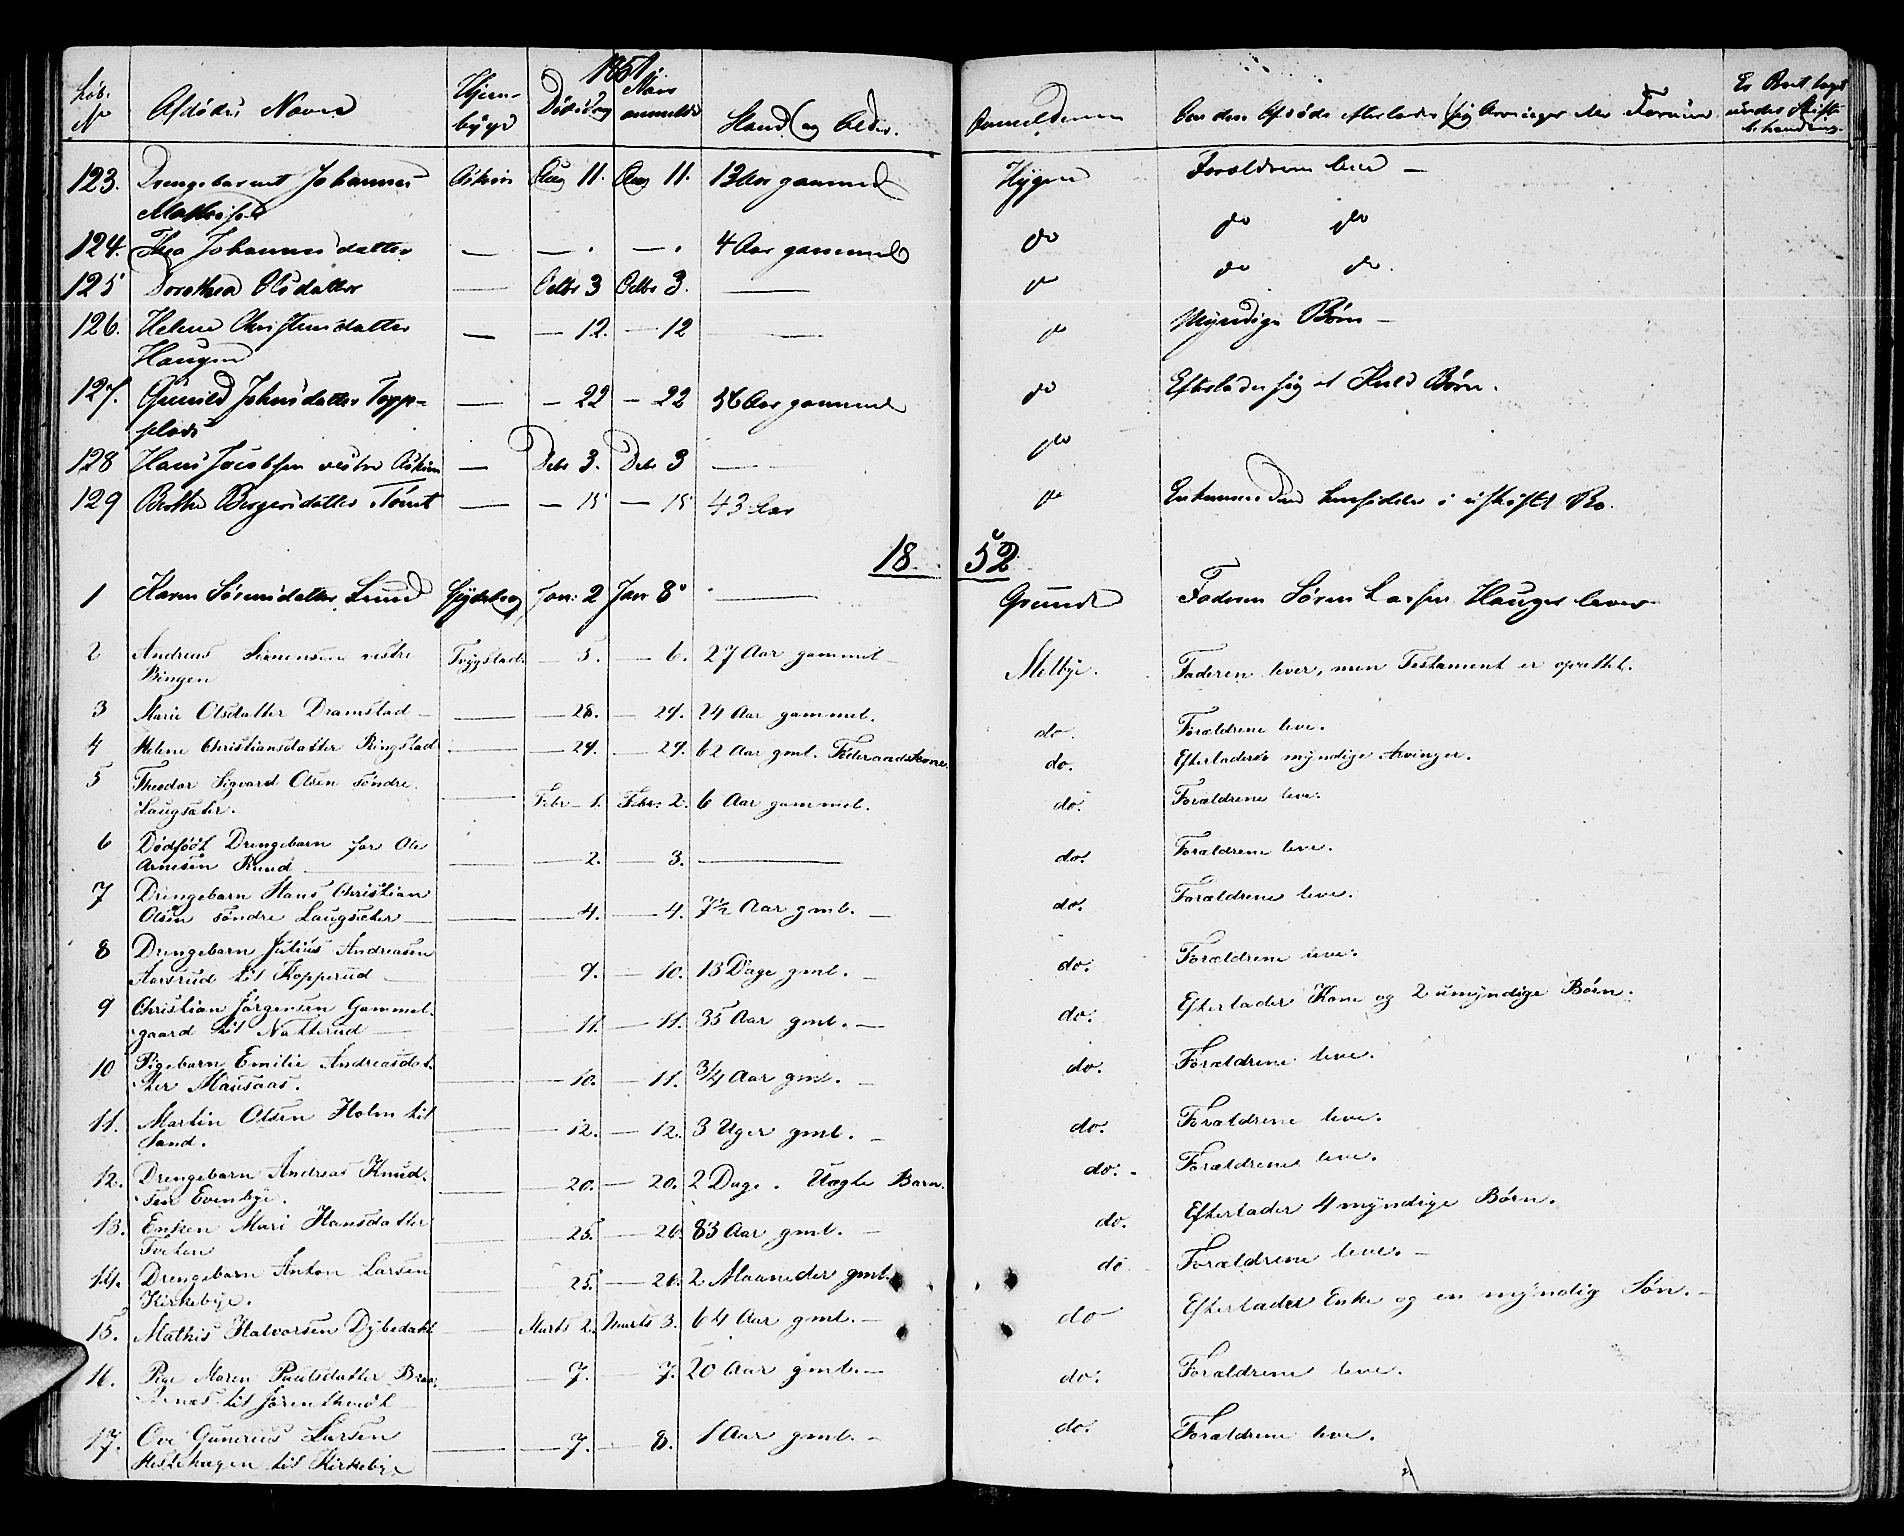 1851.
Løb. No Afdødes Navn Hjem-bygd Dødsdag Naar anmeldt Stand og Alder. Anmelderen Om den Afdøde efterlader sig Arvinger eller Formue Er Boet tagt under Skifte-behandling.
123. Drengebarnet Johannes Askim Aug 11. Aug 11. 12 Aar gammel Hygen Forældrene leve —
124. Thea Johannesdatter — — . — . 4 Aar gammel do do do
125 Dorothea Olsdatter — Octbr 3 Octbr 3. — do do do.
126. Helene Christensdatter — — 12. — 12 — do Myndige Børn —
Haugen
127. Gunild Johnsdatter Topp- — — 22 — 22 56 Aar gammel do Efterlader sig et Kuld Børn.
plads
128 Hans Jacobsen vestre Askim — Debr 3. Debr 3 — do
129 Berthe Børgersdatter Tømt — — 15 — 15 43 Aar do Enkemanden hensidder i uskiftet Bo.
1852
1 Karen Sørensdatter Lund Jan: 2 Jan 8 — Grundt Faderen Søren Larsen Haugen lever
2 Andreas Simensen vestre Trygstad — 5. — 6. 27 Aar gammel Melbye. Faderen lever, men Testament er oprettet.
Bingen
3 Marie Olsdatter Dramstad — — — 28. — 29. 24 Aar gammel. do. Forældrene leve.
4 Helene Christiansdatter Ringstad — — 29. — 29. 62 Aar gml. Føderaadskone. do. Efterlader myndige Arvinger.
5 Theodor Sigvard Olsen søndre — Febr — 1. Febr. 2. 6 Aar gammel. do. Forældrene leve.
Laugsæter.
6 Dødfødt Drengebarn for Ole — — 2. — 3. — do. Forældrene leve.
Arnesen Rund
7 Drengebarn Hans Christian — — 4. — 4. 7½ Aar gml. — do. Forældrene leve.
Olsen søndre Laugsæter —
8 Drengebarn Julius Andreasen — — 9. — 10. 13 Dage gml. — do. Forældrene leve.
Aarsrud til Kopperud —
9 Christian Jørgensen Gammel- — — 11. — 11. 35 Aar gml. — do. Efterlader Kone og 2 umyndige Børn.
gaard til Natterud —
10 Pigebarn Emilie Andreasdat- — — 10. — 11. 3/4 Aar gml. — do. Forældrene leve.
ter Mausaas.
11. Martin Olsen Holm til — — 12. — 12. 3 Uger gml. — do. Forældrene leve.
Sand.
12. Drengebarn Andreas Knud- — — 20. — 20. 2 Dage. Uægte Barn. do. - Forældrene leve.
sen Evenbye.
13. Enken Mari Hansdatter — — 25. — 26. 83 Aar gml. — do. Efterlader 4 myndige Børn.
Tveten
14. Drengebarn Anton Larsen — — 25. — 26. 2 Maaneder gml. do Forældrene leve. —
Kirkebye.
15. Mathis Halvorsen Dybedahl — Marts 2. Marts 3. 64 Aar gml. — do Efterlader Enke og en myndig Søn. —
16. Pige Maren Paulsdatter — — 7. — 7. 20 Aar gml. — do. Forældrene leve.
til
17. Ove Gunerius Larsen — — 7. — 8. 1 Aar gml. — do. Forældrene leve.
Hestehagen til Kirkebye